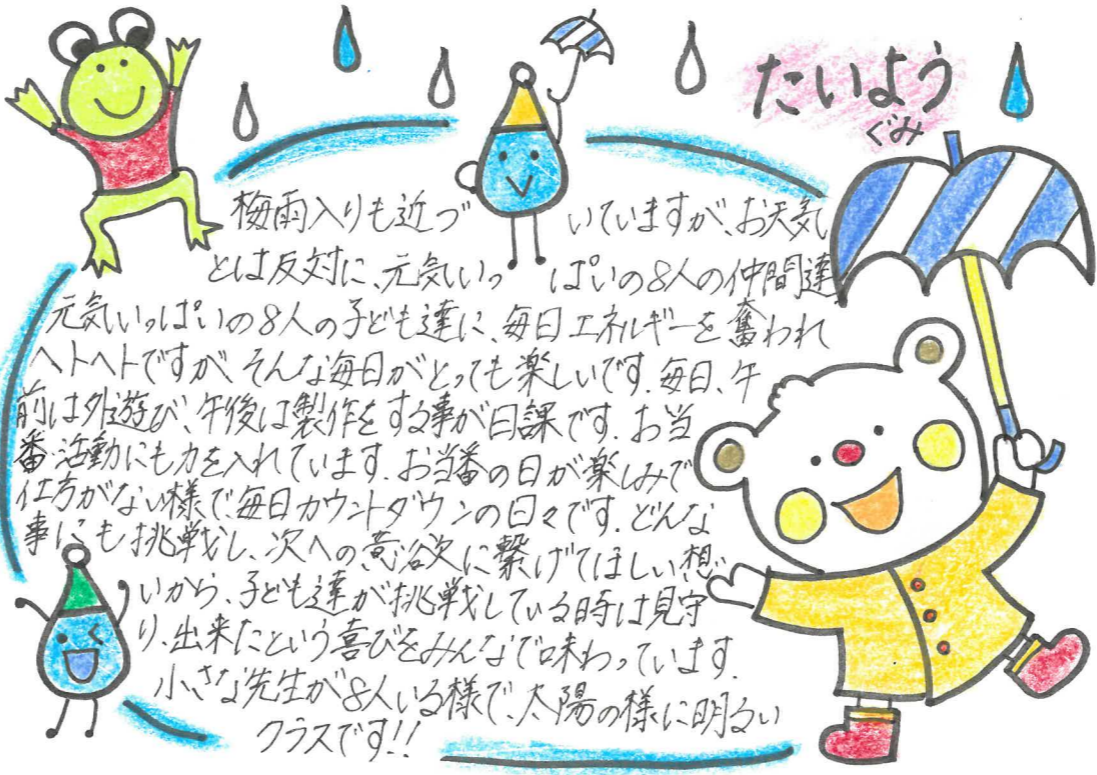 たいよう
ぐみ
梅雨入りも近づいていますが、お天気
とは反対に、元気いっぱいの8人の仲間達
元気いっぱいの8人の子ども達に、毎日エネルギーを奪われ
ヘトヘトですが、そんな毎日がとっても楽しいです.毎日、午
前は外遊び、午後は製作をする事が日課です.お当
番活動にも力を入れています.お当番の日が楽しみで
仕方がない様で毎日カウントダウンの日々です.どんな
事にも挑戦し、次への意欲に繋げてほしい想
いから、子ども達が挑戦している時は見守
り、出来たという喜びをみんなで味わっています.
小さな先生が8人いる様で、太陽の様に明るい
クラスです!!